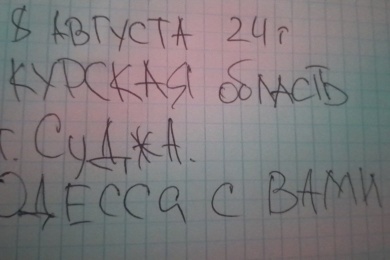 8 АВГУСТА 24 г
КУРСКАЯ область
г. СуДЖА.
ОДЕССА С ВАМИ